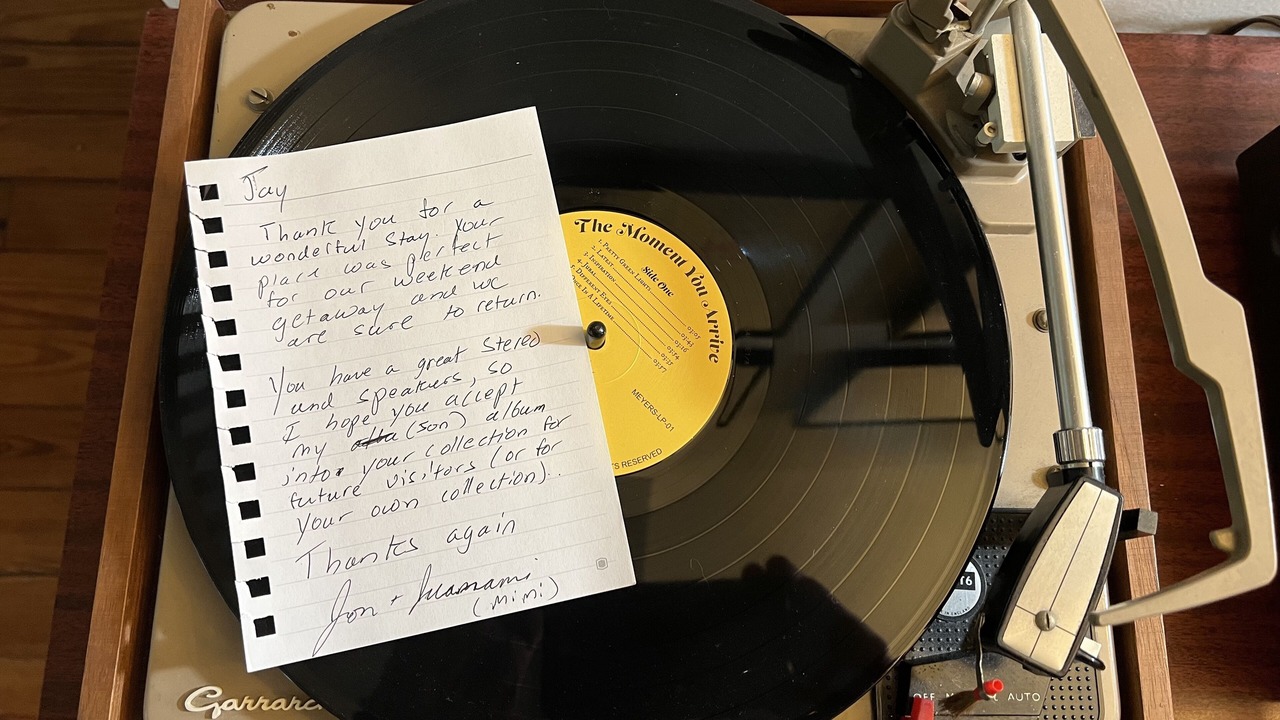 Jay
Thank you for a
wonderful stay. Your
place was perfect
for our weekend
getaway and we
are sure to return.
You have a great stereo
and speakers, so
I hope you accept
my (son) album
into your collection for
future visitors (or for
your own collection)..
Thanks again
Jon +
(Mimi)
The Moment You Arrive
Side One
1. Pretty Green Lights
2. Latest
3. Inspiration
5. Different Eyes
Once In A Lifetime
MEYERS-LP-01
RESERVED
Garrard
OFF
AUTO